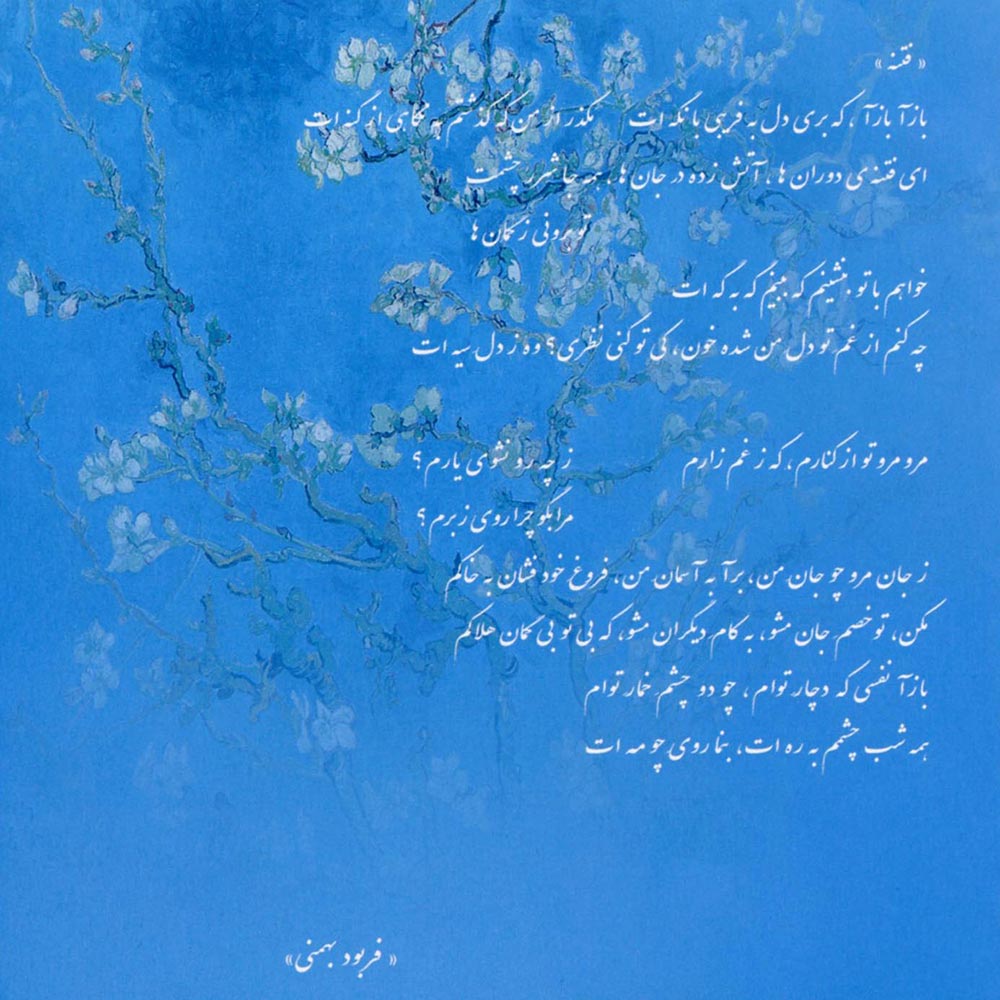 « فتنه »
بازآ بازآ ، که بری دل به فریبی با نگه ات مگذر از من که گذشتم به نگاهی از گنه ات
ای فتنه‌ی دوران ها ، آتش زده در جان ها ، همه جا شرر چشمت
تو برونی ز گمان ها
خواهم با تو بنشینم که ببینم که به گه ات
چه کنم از غم تو دل من شده خون، کی تو کنی نظری؟ وه ز دل سیه ات
مرو مرو تو از کنارم ، که ز غم زارم ز چه رو نشوی یارم ؟
مرا بگو چرا روی ز برم ؟
ز جان مرو چو جان من، برآ به آسمان من، فروغ خود فشان به خاکم
مکن، تو خصم جان مشو، به کام دیگران مشو، که بی تو بی گمان هلاکم
بازآ نفسی که دچار توام ، چو دو چشم خمار توام
همه شب چشمم به ره ات، بنما روی چو مه ات
« فربود بهمنی»